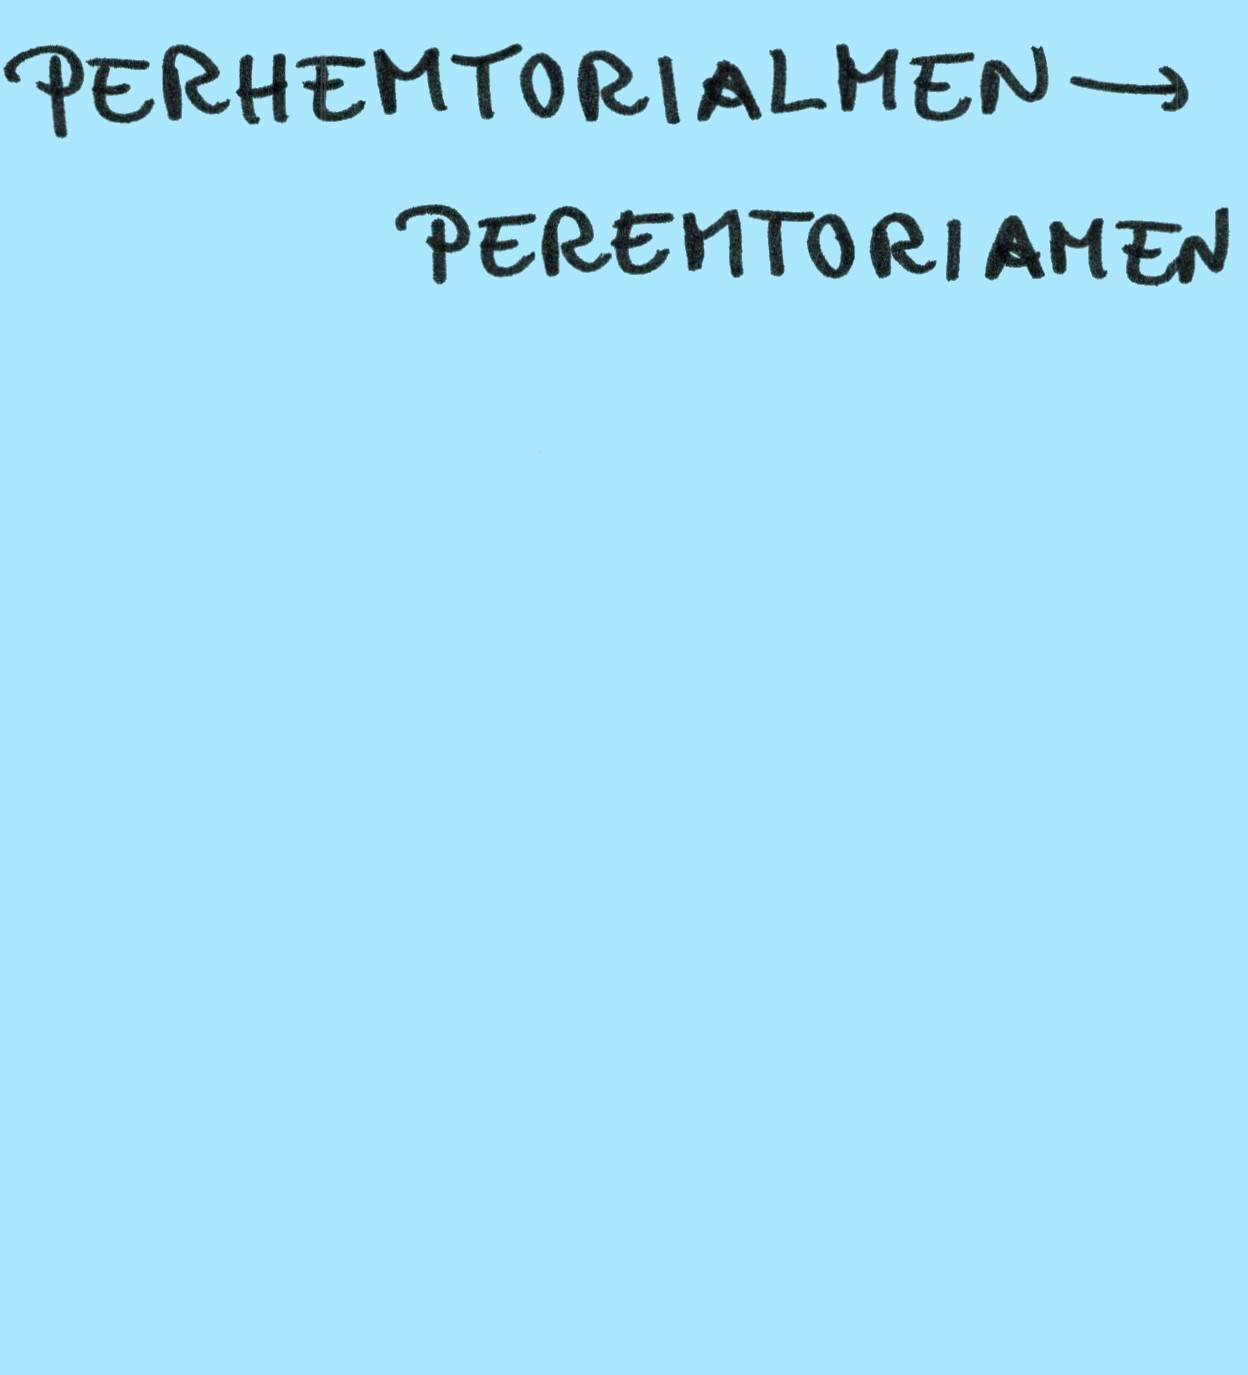 PERHEMTORIALMEN →
PEREMTORIAMEN